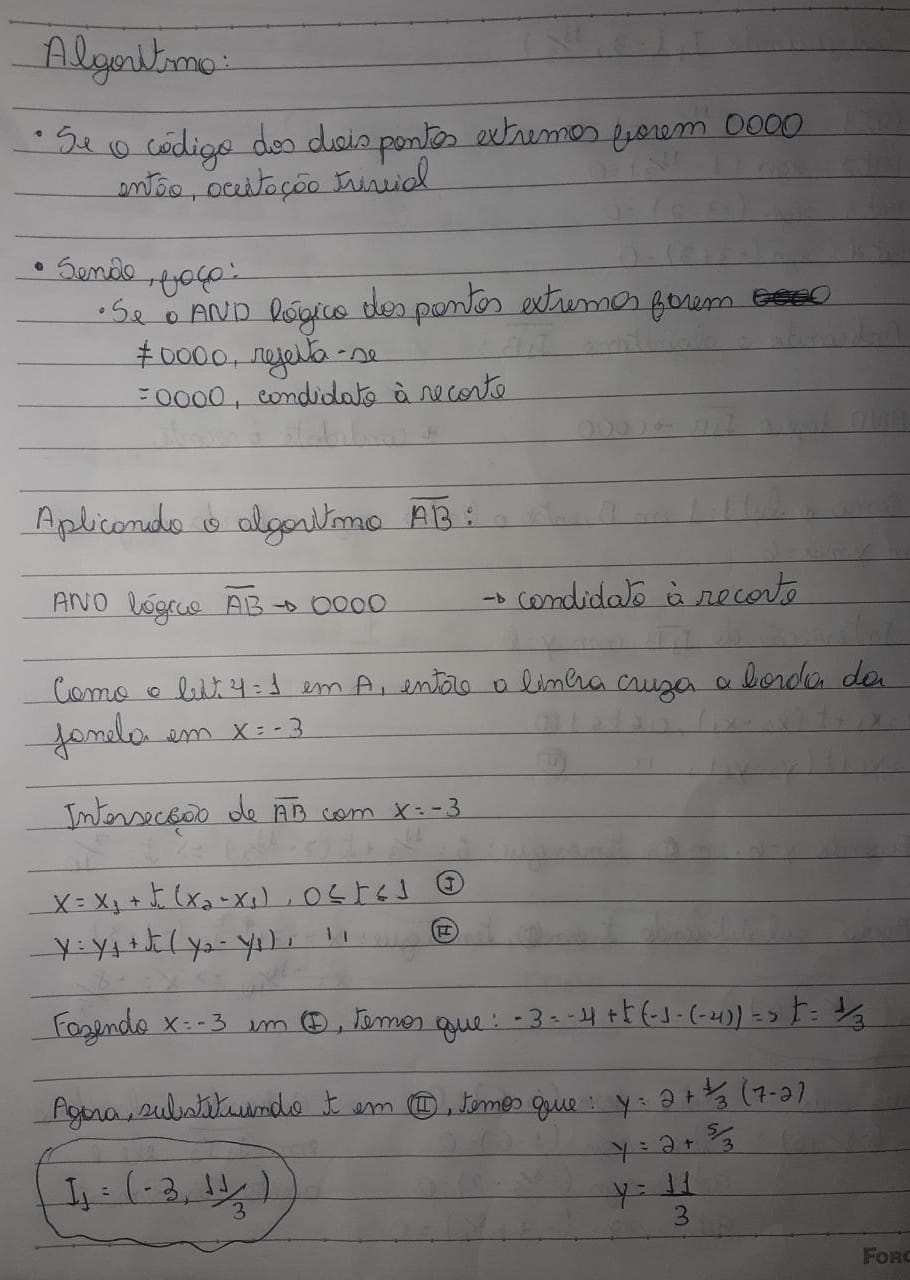 Algoritmo:
• Se o código dos dois pontos extremos forem 0000
então, aceitação trivial
• Senão, faço:
• Se o AND lógico dos pontos extremos forem
≠0000, rejeita-se
=0000, candidato à recorte
Aplicando o algoritmo A̅B̅:
AND lógico A̅B̅ → 0000 → candidato à recorte
Como o bit 4=1 em A, então a linha cruza a borda da
janela em x=-3
Intersecção de A̅B̅ com x=-3
x = x₁ + t(x₂-x₁), 0≤t≤1 Ⓘ
y = y₁ + t(y₂-y₁), '' Ⅱ
Fazendo x=-3 em Ⓘ, temos que: -3=-4+t(-1-(-4)) => t= 1/3
Agora, substituindo t em Ⅱ, temos que: y = 2 + 1/3 (7-2)
y = 2 + 5/3
I₁ = (-3, 11/3) y = 11/3
FORO